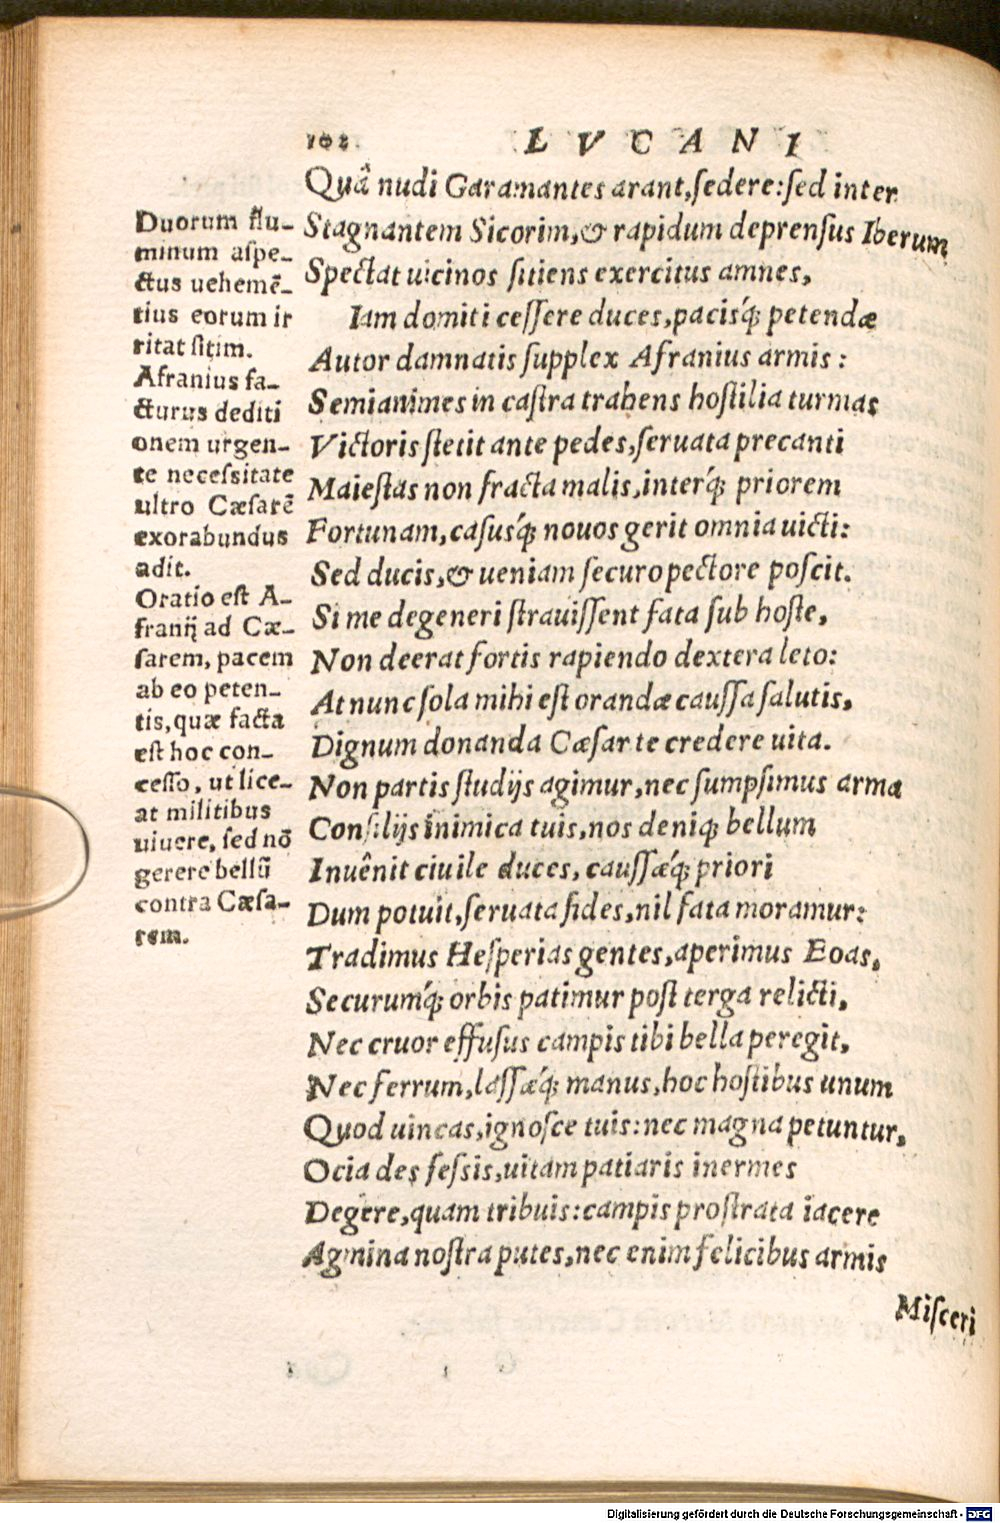 102. LVCANI
Quâ nudi Garamantes arant, sedere: sed inter
Stagnantem Sicorim, & rapidum deprensus Iberum
Spectat uicinos sitiens exercitus amnes,
Iam domiti cessere duces, pacisq́; petendæ
Autor damnatis supplex Afranius armis:
Semianimes in castra trahens hostilia turmas
Victoris stetit ante pedes, seruata precanti
Maiestas non fracta malis, interq́; priorem
Fortunam, casusq́; nouos gerit omnia uicti:
Sed ducis, & ueniam securo pectore poscit.
Si me degeneri strauissent fata sub hoste,
Non deerat fortis rapiendo dextera leto:
At nunc sola mihi est orandæ caussa salutis,
Dignum donanda Cæsar te credere uita.
Non partis studijs agimur, nec sumpsimus arma
Consilijs inimica tuis, nos deniq; bellum
Inuênit ciuile duces, caussæq́; priori
Dum potuit, seruata fides, nil fata moramur:
Tradimus Hesperias gentes, aperimus Eoas,
Securumq́; orbis patimur post terga relicti,
Nec cruor effusus campis tibi bella peregit,
Nec ferrum, lassæq́; manus, hoc hostibus unum
Quod uincas, ignosce tuis: nec magna petuntur,
Ocia des fessis, uitam patiaris inermes
Degere, quam tribuis: campis prostrata iacere
Agmina nostra putes, nec enim felicibus armis
Misceri
Duorum flu-
minum aspe-
ctus uehemẽ-
tius eorum ir
ritat sitim.
Afranius fa-
cturus dediti
onem urgen-
te necessitate
ultro Cæsarẽ
exorabundus
adit.
Oratio est A-
franij ad Cæ-
sarem, pacem
ab eo peten-
tis, quæ facta
est hoc con-
cesso, ut lice-
at militibus
uiuere, sed nõ
gerere bellũ
contra Cæsa-
rem.
Digitalisierung gefördert durch die Deutsche Forschungsgemeinschaft - DFG